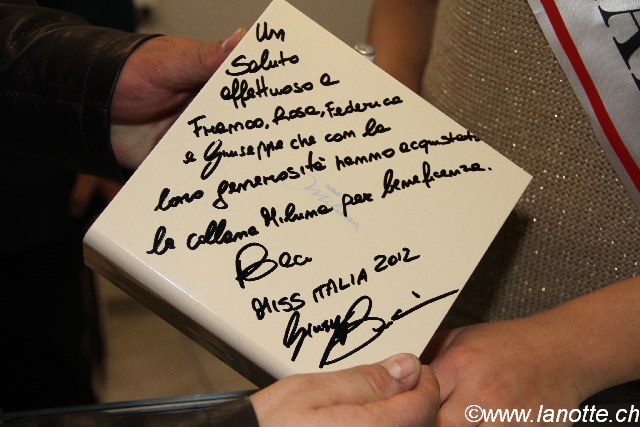 Un
Saluto
affettuoso a
Franco, Rosa, Federica
e Giuseppe che con la
loro generosità hanno acquistato
la collana Miluna per beneficenza.
Baci
MISS ITALIA 2012
Giusy B
©www.lanotte.ch